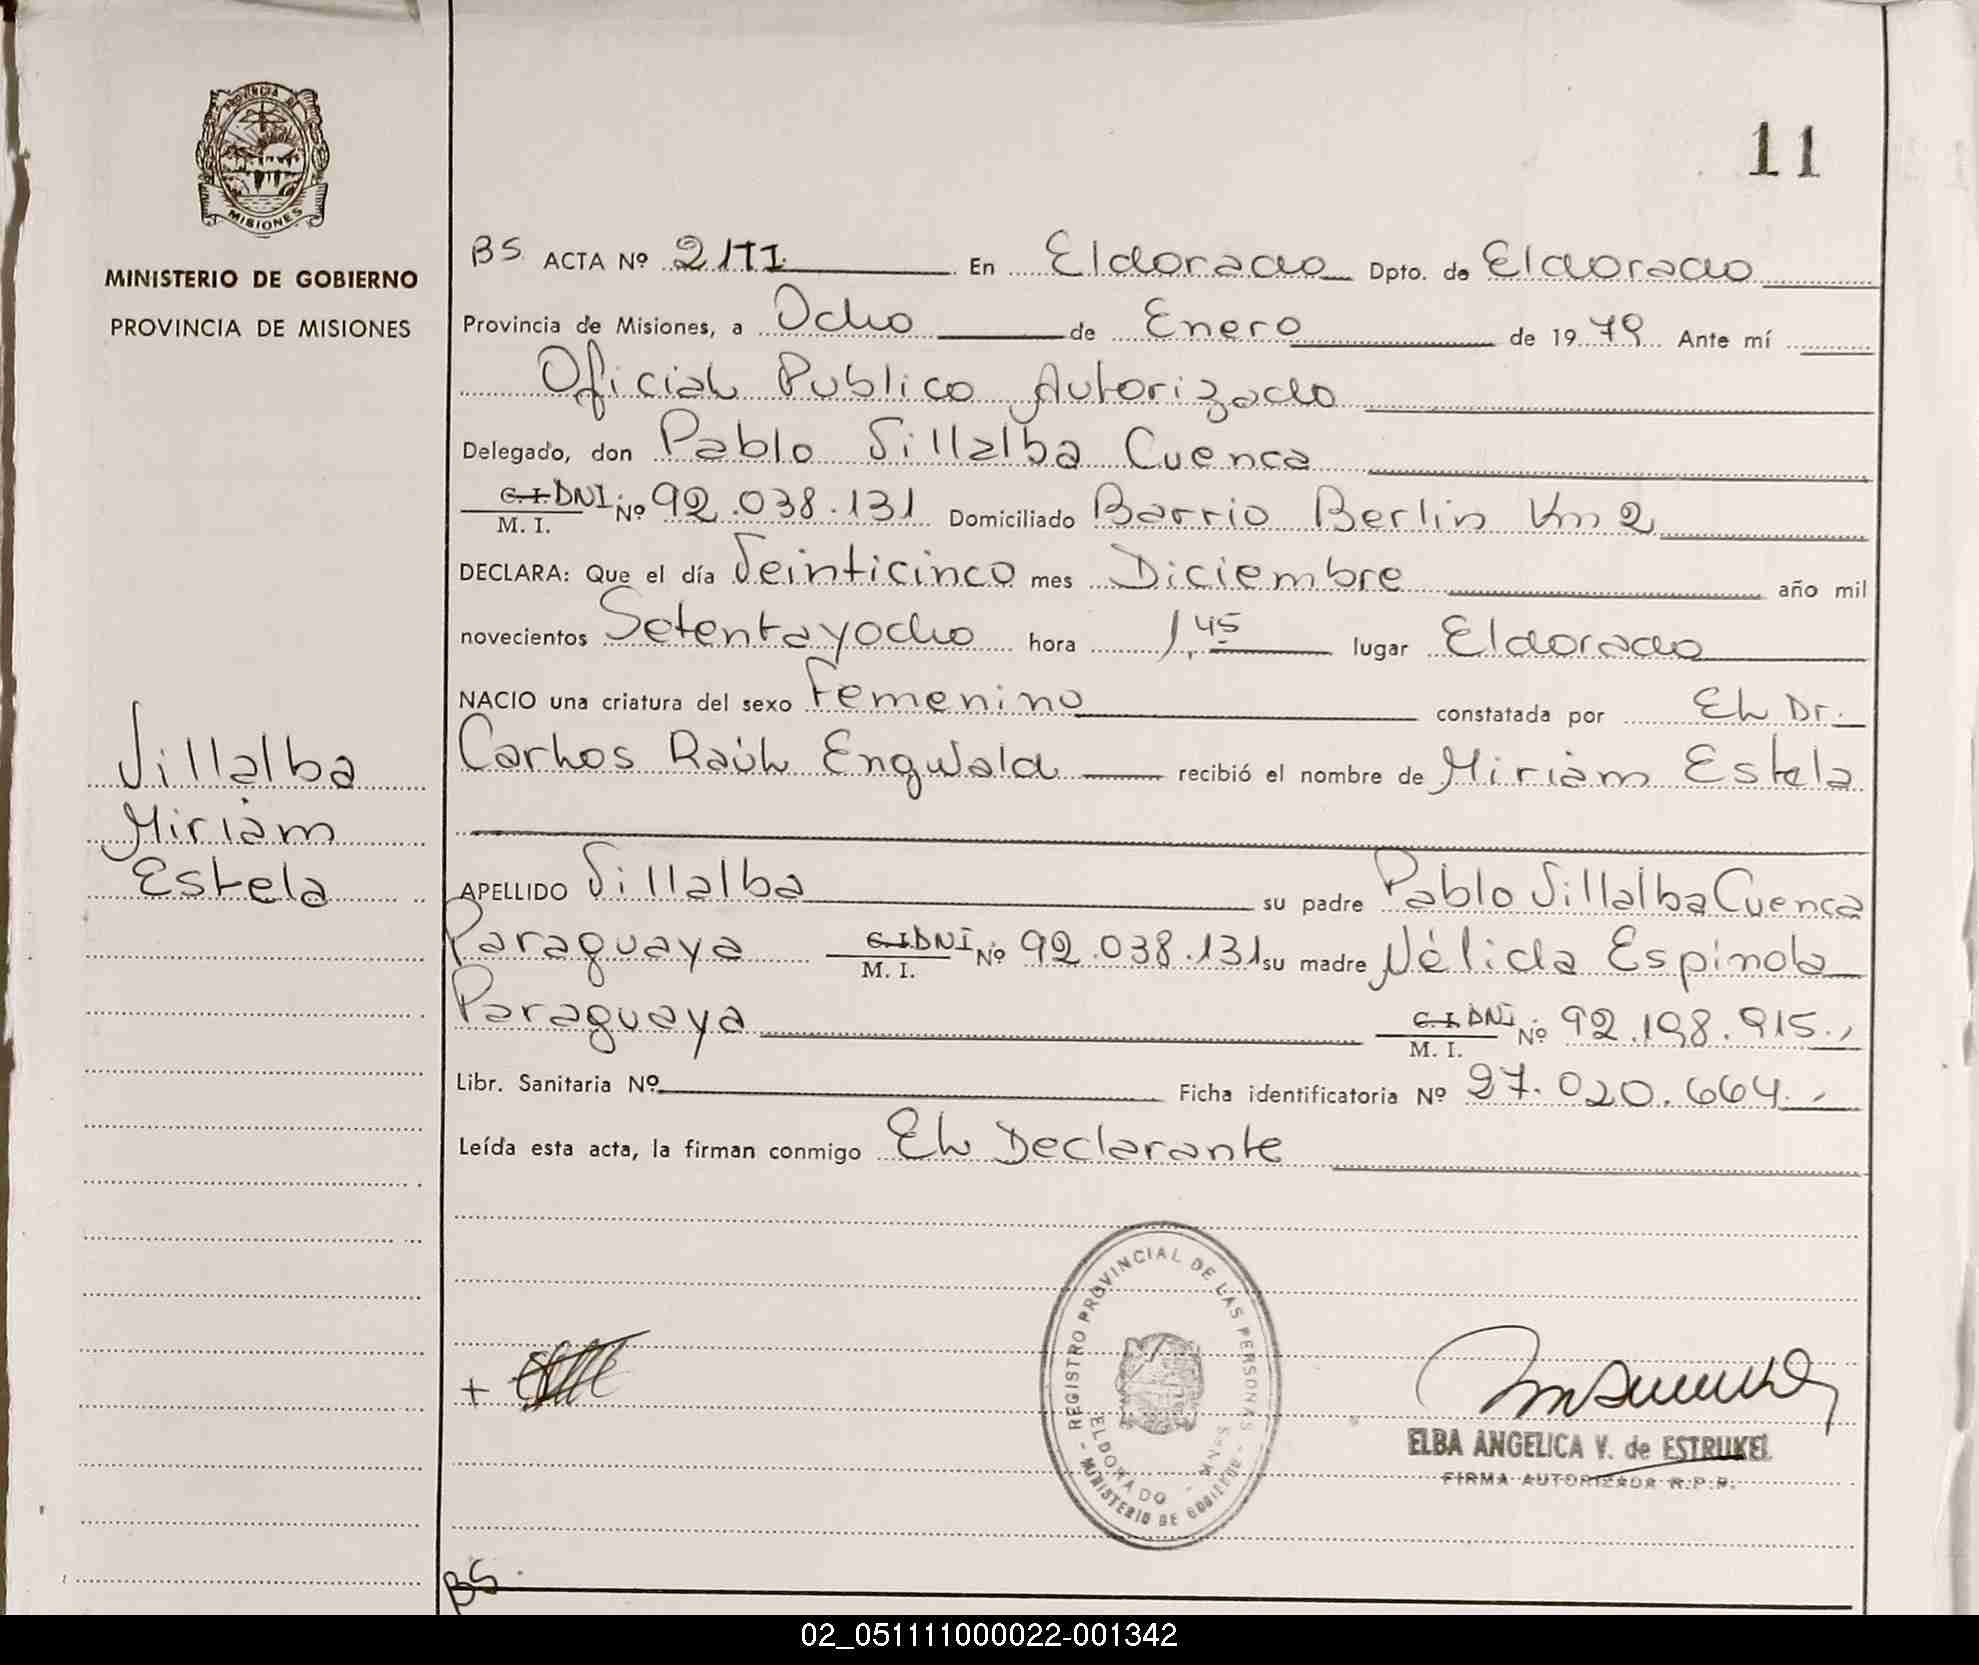 11
PROVINCIA DE
MISIONES
MINISTERIO DE GOBIERNO
PROVINCIA DE MISIONES
BS ACTA Nº 2/TI En Eldorado Dpto. de Eldorado
Provincia de Misiones, a Ocho de Enero de 1979 Ante mí
Oficial Publico Autorizado
Delegado, don Pablo Villalba Cuenca
C.I. DNI Nº 92.038.131 Domiciliado Barrio Berlin Km 2
M. I.
DECLARA: Que el día Veinticinco mes Diciembre año mil
novecientos Setentayocho hora 1,45 lugar Eldorado
NACIO una criatura del sexo Femenino constatada por El Dr.
Carlos Raúl Engwald recibió el nombre de Miriam Estela
Villalba
Miriam
Estela
APELLIDO Villalba su padre Pablo Villalba Cuenca
Paraguaya C.I. DNI Nº 92.038.131 su madre Nélida Espinola
M. I.
Paraguaya C.I. DNI Nº 92.198.915.,
M. I.
Libr. Sanitaria Nº Ficha identificatoria Nº 27.020.664.,
Leída esta acta, la firman conmigo El Declarante
- REGISTRO PROVINCIAL DE LAS PERSONAS -
ELDORADO - MNES
MINISTERIO DE GOBIERNO
+
ELBA ANGELICA V. de ESTRUKEL
FIRMA AUTORIZADA R.P.P.
BS
02_051111000022-001342